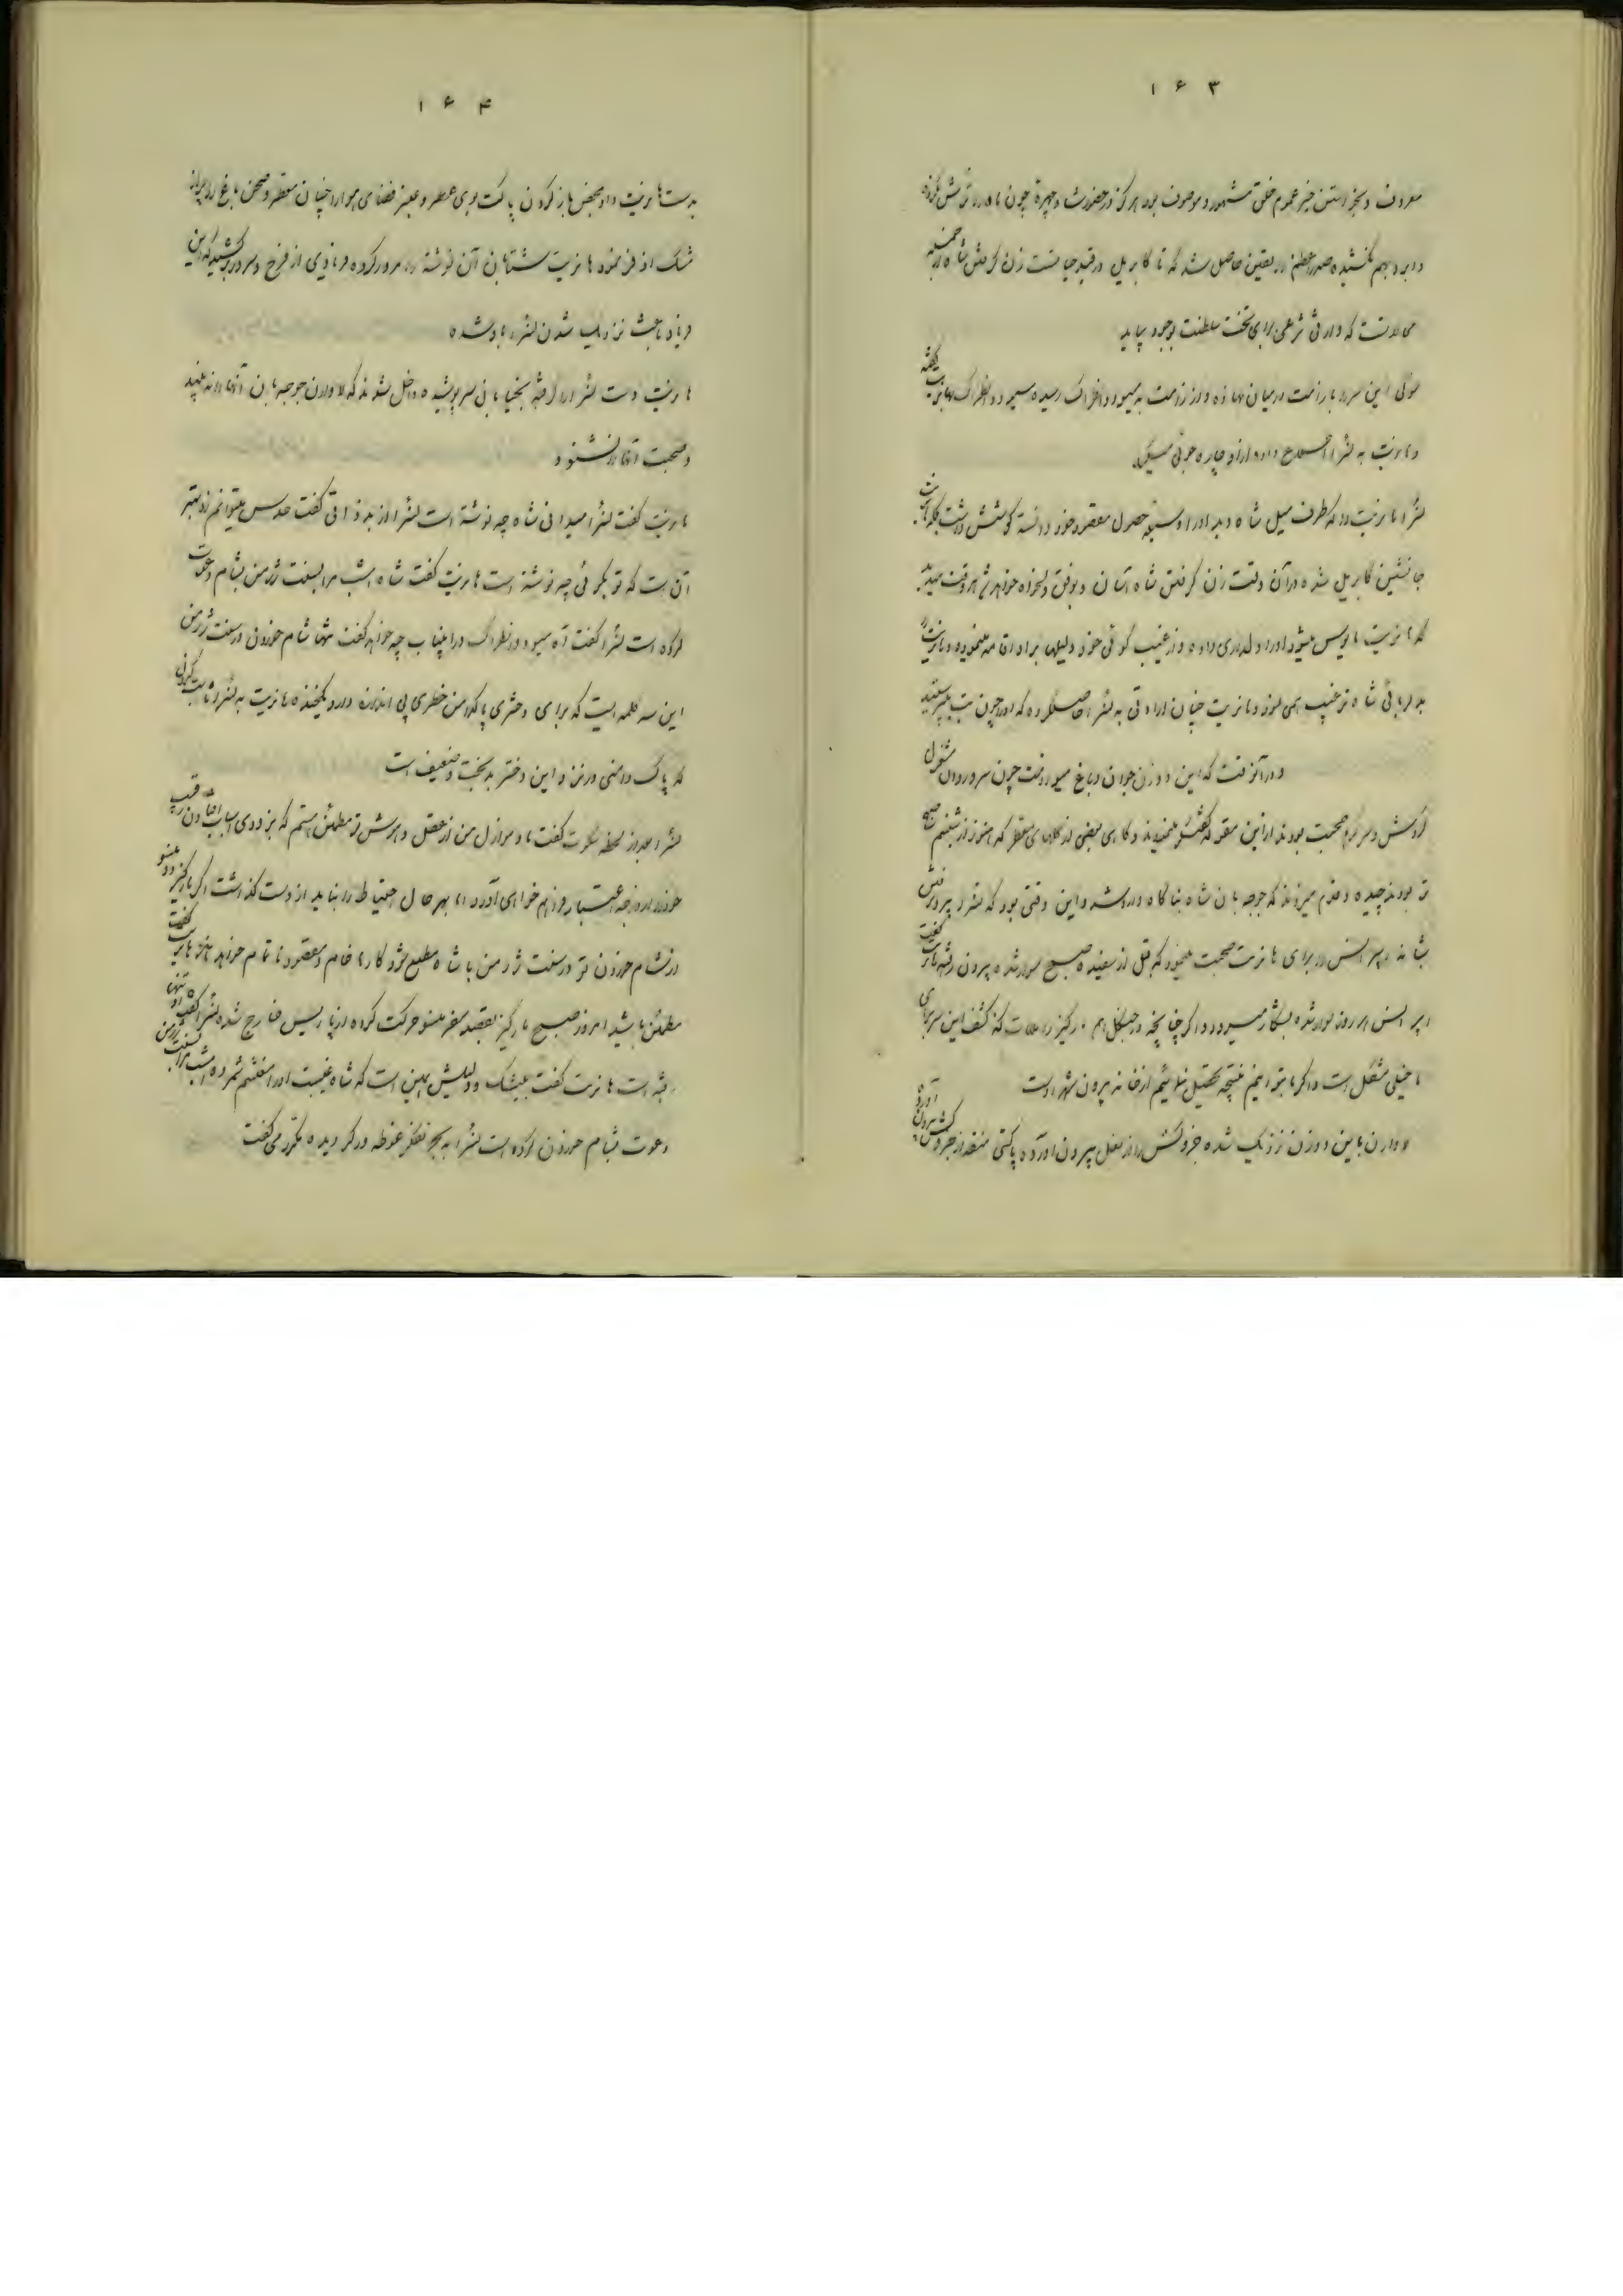 ۱۶۳
معروف و بخواستن خیر عموم خلق مشهور و موصوف بود هرگز در حضورش و چهره چون ماه را ترش نکرده
و ابرو بهم نکشیده صدراعظم را یقین حاصل شد که تا کابریل در قید حیات است زن گرفتن شاه
محالست که وارثی شرعی برای تخت سلطنت بوجود بیاید
سولی این سر را با زانمت در میان نهاده و از زانمت به مسیو دونطراک رسیده مسیو دونطراک بهانریت گفته
و هانریت به لنرا اطلاع داده از او چاره جوئی میکرد
لنرا هانریت را که طرف میل شاه دید او را وسیله حصول مقصود خود دانسته کوشش داشت بلکه
جانشین کابریل شده در آن وقت زن گرفتن شاه آسان و بوفق دلخواه خواهد شد هر وقت میدید
که هانریت مایوس میشود او را دلداری داده و از غیب گوئی خود دلیلها برای او اقامه مینمود و هانریت را
بدلربائی شاه ترغیب همی نمود و هانریت چنان ارادتی به لنرا حاصل کرده که او را چون بت میپرستید
و در آنوقت که این دو زن جوان در باغ میوه درخت چون سرو روان مشغول
گردش و سرگرم صحبت بودند از این مقوله گفتگو مینمودند و گاهی بعضی از گلهای معطر که هنوز از شبنم صبح
تر بودند چیده و قدم میزدند که جوجه بان شاه بناگاه وارد شد و این وقتی بود که لنرا
شاه به پرانس را برای هانریت صحبت مینمود که قبل از سفیده صبح سوار شده بیرون رفته هانریت گفت
پرانس هر روز سوار شده بشکار میرود و اگر چنانچه در جنگل هم مارکیز را ملاقات کند کشف این سر برای
ما خیلی مشکل است و اگر ما بتوانیم نتیجه تحصیل نمائیم از خانه بیرون شهر اوست
لاوارن باین دو زن نزدیک شده جزوکش را از بغل بیرون آورده پاکتی منقد از جزوکش بیرون آورده
۱۶۴
بدست هانریت داد و بمحض باز کردن پاکت بوی عطر و عبیر فضای هوا را چنان معطر و صحن باغ را چراغ
مشک اذفر نمود هانریت شتابان آن نوشته را مرور کرده فریادی از فرح و سرور برکشید که این
فریاد باعث نزدیک شدن لنرا باو شده
هانریت دست لنرا را گرفته بخیابانی سرپوشیده داخل شدند که لاوارن جوجه بان آنها را نه بیند
و صحبت آنها را نشنود
هانریت گفت لنرا میدانی شاه چه نوشته است لنرا از بد ذاتی گفت حدس میتوانم زد بهتر
آن است که تو بگوئی چه نوشته است هانریت گفت شاه امشب مرا بسنت ژرمن بشام دعوت
کرده است لنرا گفت آه مسیو دونطراک در اینباب چه خواهد گفت تنها شام خوردن در سنت ژرمن
این سه کلمه ایست که برای دختری پاکدامن خطری بی اندازه دارد و میخنده هانریت به لنرا ثابت کردی
که پاک دامنی در نزد این دختر بدبخت و ضعیف است
لنرا بعد از لحظه سکوت گفت مادموازل من از عقل و هوش تو مطمئن هستم که بزودی اسباب افتادن رقیب
خود را درجه اعتبار فراهم خواهی آورد اما بهر حال احتیاط را نباید از دست گذاشت اگر مارکیز دو منسو
در شام خوردن تو در سنت ژرمن با شاه مطلع شود کار ما خام و مقصود ناتمام خواهد ماند هانریت گفت
مطمئن باشید امروز صبح مارکیز بقصد سفر منسو حرکت کرده از پاریس خارج شده لنرا گفت او تنها
رفته است هانریت گفت بیشک و دلیلش همین است که شاه غیبت او را مغتنم شمرده امشب مرا بسنت ژرمن
دعوت بشام خوردن کرده است لنرا به بحر تفکر غوطه ور گردیده مکرر می گفت